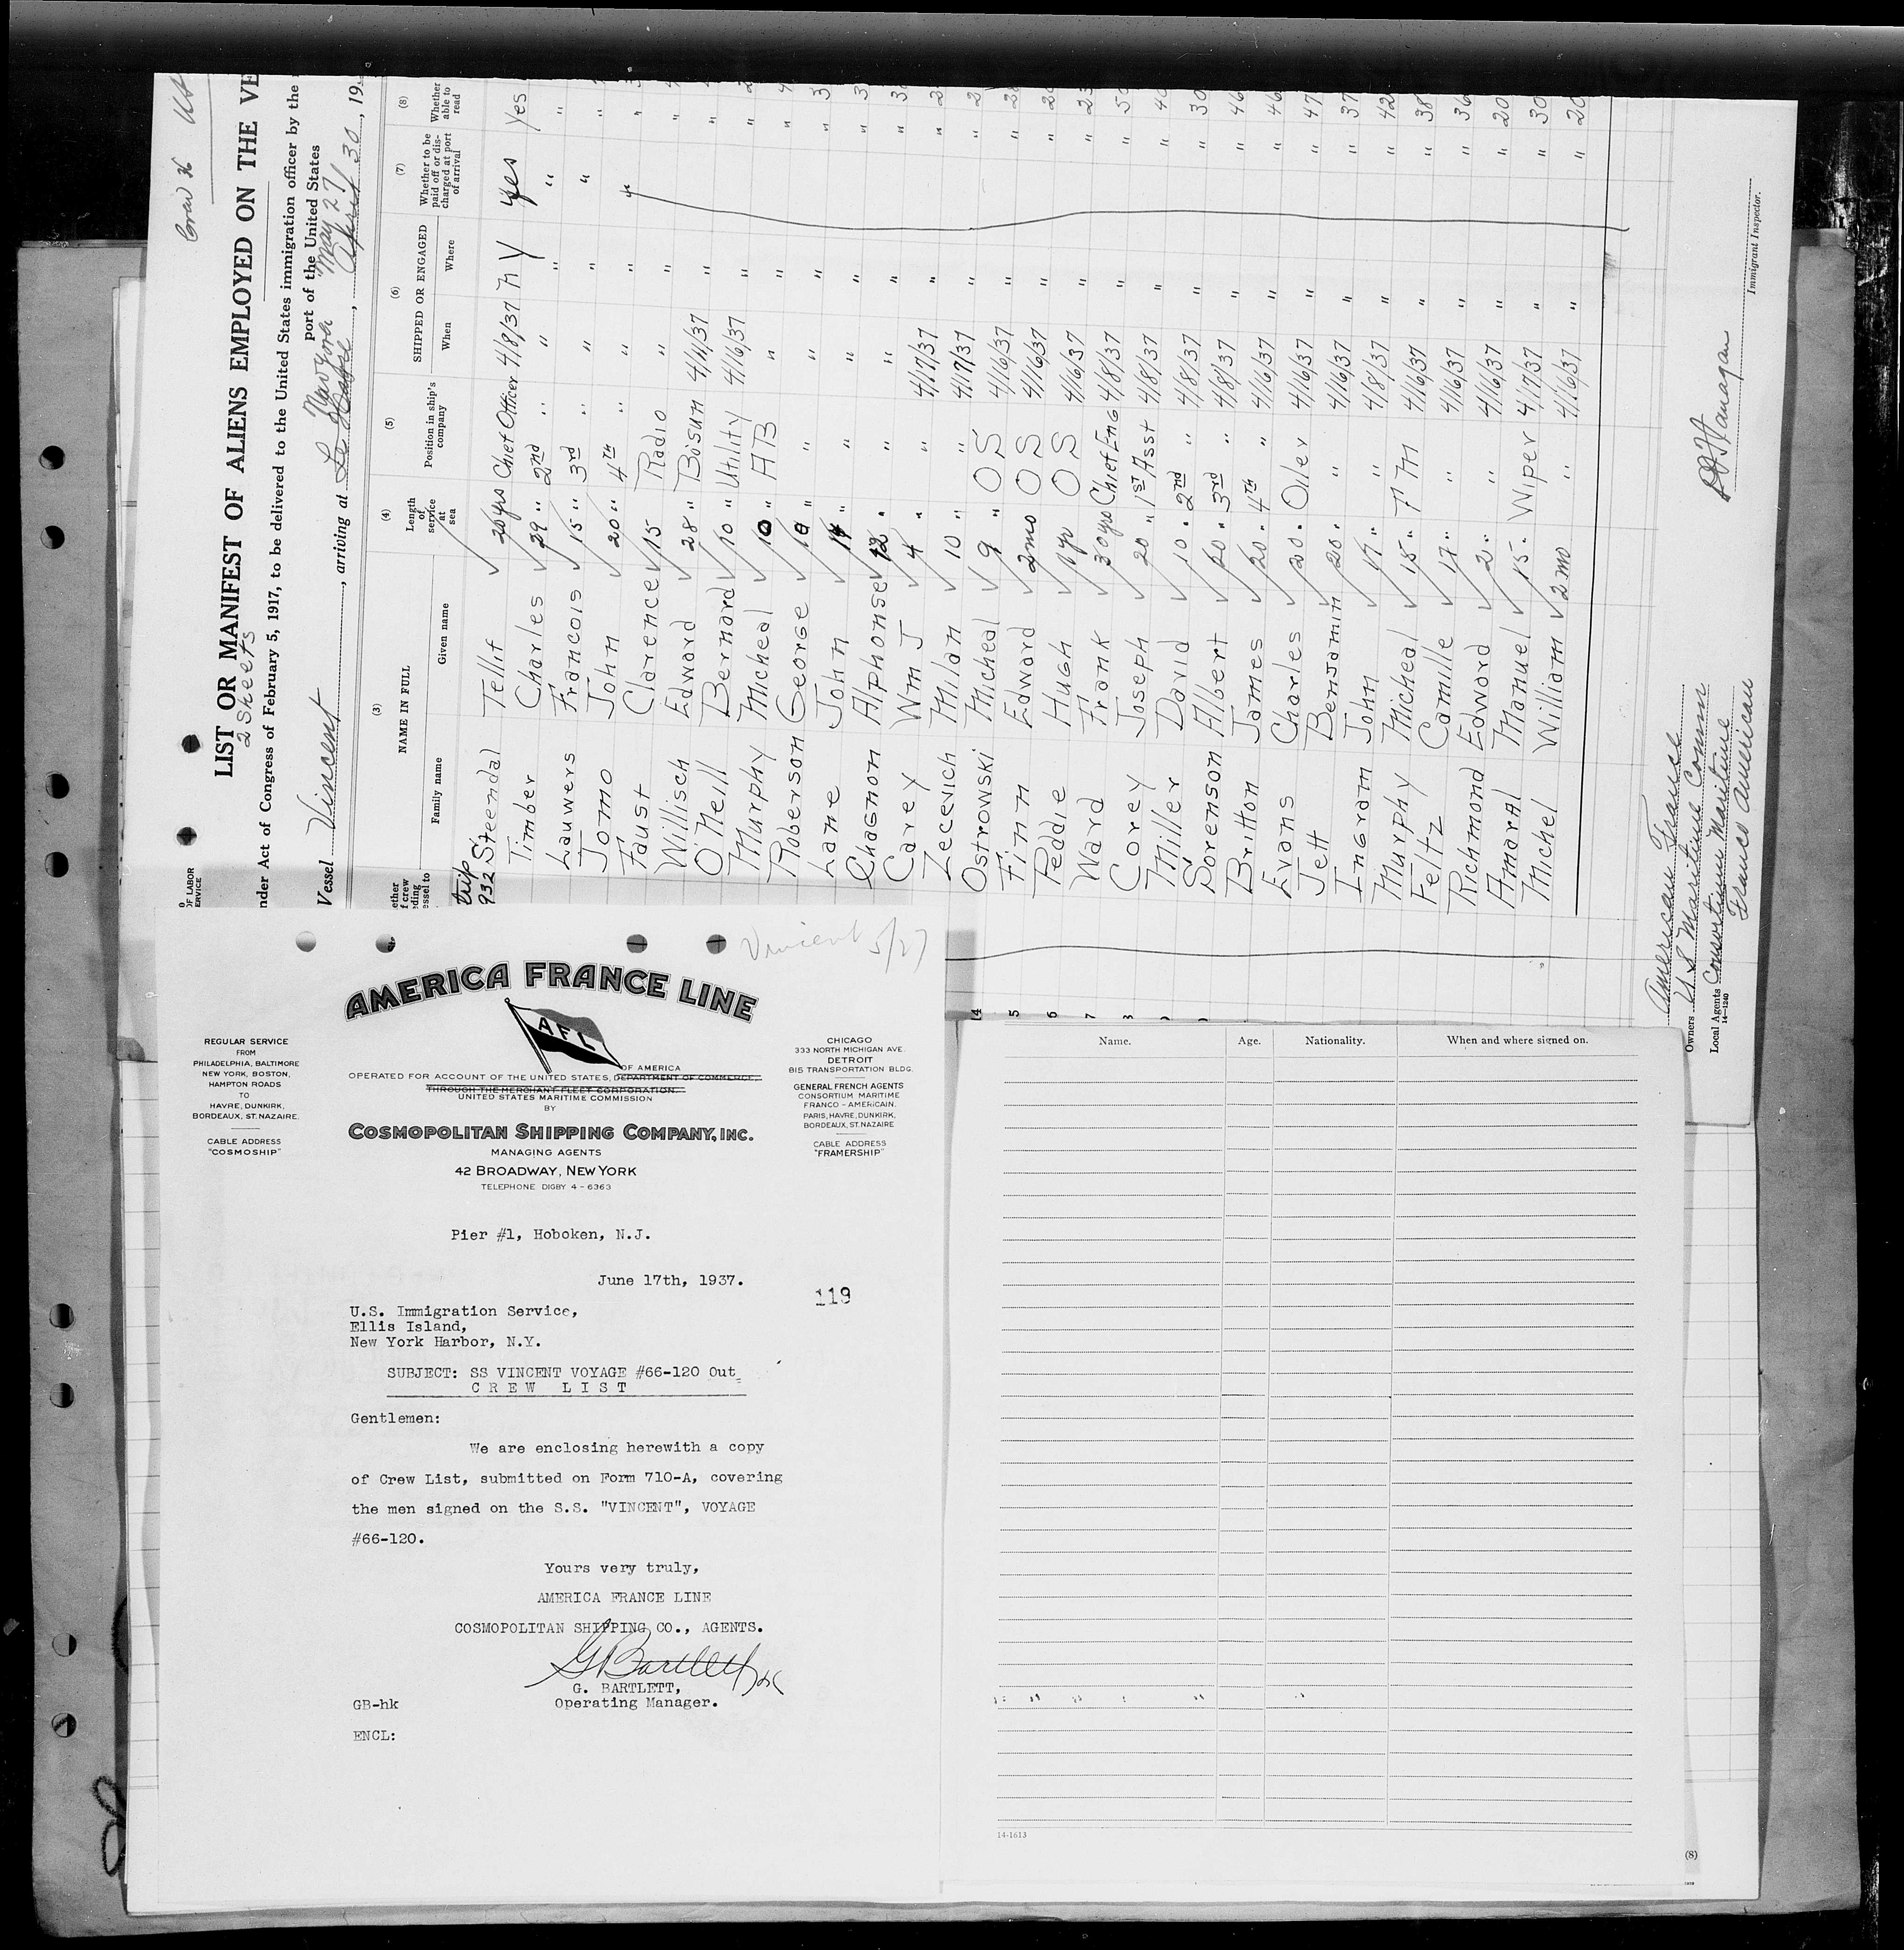 Crew 36
LIST OR MANIFEST OF ALIENS EMPLOYED ON THE VE
2 Sheets
nder Act of Congress of February 5, 1917, to be delivered to the United States immigration officer by the
port of the United States
Vessel Vincent, arriving at Le Havre, April 30, 19
New York May 27
OF LABOR
ERVICE
(3) (4) (5) (6) (7) (8)
NAME IN FULL
Family name Given name
Length of service at sea
Position in ship's company
SHIPPED OR ENGAGED
When Where
Whether to be paid off or discharged at port of arrival
Whether able to read
trip
932 Steendal Tellif 20 yrs Chief Officer 4/8/37 N Y Yes Yes
Timber Charles 29 " 2nd " " " " "
Lauwers Francois 15 " 3rd " " " "
Jomo John 20 " 4TH " " " " "
Faust Clarence 15 Radio " " "
Willisch Edward 28 " Bosun 4/11/37 " "
O'Neill Bernard 10 " Utility 4/16/37 " "
Murphy Micheal 10 " AB " " "
Roberson George 10 " " " " "
Lane John 14 " " " " "
Chagnon Alphonse 12 " " " " "
Carey Wm J 4 " " 4/17/37 " "
Zecevich Milan 10 " " 4/17/37 " "
Ostrowski Micheal 9 " OS 4/16/37 " "
Finn Edward 2 mo OS 4/16/37 " "
Peddie Hugh 1 yr OS 4/16/37 " "
Ward Frank 30 yrs Chief Eng 4/8/37 " " 50
Corey Joseph 20 " 1ST Asst 4/8/37 " " 40
Miller David 10 " 2nd " 4/8/37 " " 30
Sorenson Albert 20 " 3rd " 4/8/37 " " 46
Britton James 20 " 4TH " 4/16/37 " " 46
Evans Charles 20 " Oiler 4/16/37 " " 47
Jett Benjamin 20 " " 4/16/37 " " 37
Ingram John 17 " " 4/8/37 " " 42
Murphy Micheal 18 " F M 4/16/37 " " 38
Feltz Camille 17 " " 4/16/37 " " 36
Richmond Edward 2 " " 4/16/37 " " 20
Amaral Manuel 15 " Wiper 4/17/37 " " 30
Michel William 2 mo " 4/16/37 " " 20
American France
Owners U S Maritime Comm
Local Agents Consortium Maritime
Franco American
14-1240
Immigrant Inspector.
Vincent 5/27
AMERICA FRANCE LINE
AFL
REGULAR SERVICE
FROM
PHILADELPHIA, BALTIMORE
NEW YORK, BOSTON,
HAMPTON ROADS
TO
HAVRE, DUNKIRK,
BORDEAUX, ST. NAZAIRE.
CABLE ADDRESS
"COSMOSHIP"
OF AMERICA
OPERATED FOR ACCOUNT OF THE UNITED STATES, DEPARTMENT OF COMMERCE,
THROUGH THE MERCHANT FLEET CORPORATION.
UNITED STATES MARITIME COMMISSION
BY
COSMOPOLITAN SHIPPING COMPANY, INC.
MANAGING AGENTS
42 BROADWAY, NEW YORK
TELEPHONE DIGBY 4-6363
CHICAGO
333 NORTH MICHIGAN AVE.
DETROIT
815 TRANSPORTATION BLDG.
GENERAL FRENCH AGENTS
CONSORTIUM MARITIME
FRANCO-AMERICAIN.
PARIS, HAVRE, DUNKIRK,
BORDEAUX, ST. NAZAIRE
CABLE ADDRESS
"FRAMERSHIP"
Pier #1, Hoboken, N.J.
June 17th, 1937.
119
U.S. Immigration Service,
Ellis Island,
New York Harbor, N.Y.
SUBJECT: SS VINCENT VOYAGE #66-120 Out
CREW LIST
Gentlemen:
We are enclosing herewith a copy
of Crew List, submitted on Form 710-A, covering
the men signed on the S.S. "VINCENT", VOYAGE
#66-120.
Yours very truly,
AMERICA FRANCE LINE
COSMOPOLITAN SHIPPING CO., AGENTS.
G Bartlett
G. BARTLETT,
Operating Manager.
GB-hk
ENCL:
Name. Age. Nationality. When and where signed on.
14-1613
(8)